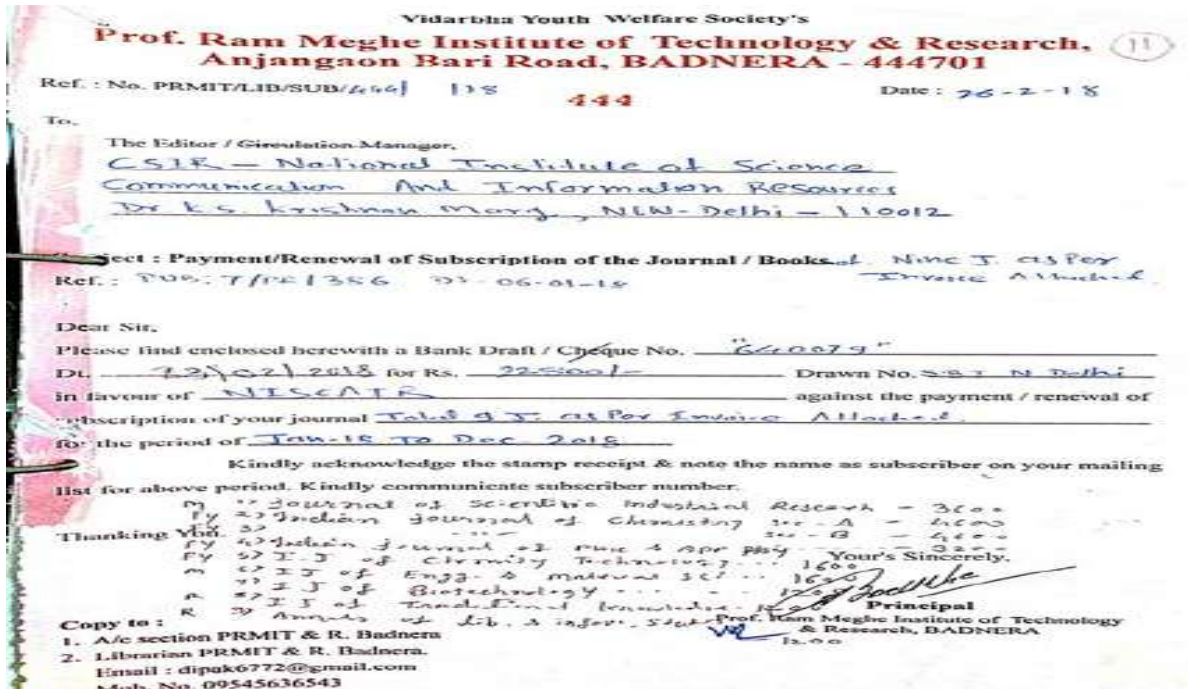 Vidarbha Youth Welfare Society's
Prof. Ram Meghe Institute of Technology & Research,
11
Anjangaon Bari Road, BADNERA - 444701
Ref. : No. PRMIT/LIB/SUB/444/ 118
Date : 26-2-18
444
To,
The Editor / Circulation Manager,
CSIR - National Institute of Science
Communication And Information Resources
Dr K.S. Krishnan Marg, New-Delhi - 110012
: Payment/Renewal of Subscription of the Journal / Books of Nine J. as Per
Ref. : 386 06-01-18 Invoice Attached.
Dear Sir,
Please find enclosed herewith a Bank Draft / Cheque No. "640079"
Dt. /02/2018 for Rs. 22500/- Drawn No. SBI N Delhi
in favour of NISCAIR against the payment / renewal of
subscription of your journal Total 9 J. as Per Invoice Attached.
for the period of Jan-18 To Dec 2018
Kindly acknowledge the stamp receipt & note the name as subscriber on your mailing
list for above period. Kindly communicate subscriber number.
M 1) Journal of Scientific Industrial Research - 3600
2) Indian Journal of Chemistry Sec-A - 4600
3) Sec-B - 4600
Thanking You.
4) Indian Journal of Pure & App Phy - 3200
Your's Sincerely,
5) I J of Technology 1600
M 6) I J of Engg. & Material Sci 1600
7) I J of Biotechnology
8) I J of Traditional knowledge
R 9) Annals of Lib. & infor. 1200
Principal
Prof. Ram Meghe Institute of Technology
& Research, BADNERA
Copy to :
1. A/c section PRMIT & R. Badnera
2. Librarian PRMIT & R. Badnera.
Email : dipak6772@gmail.com
Mob. No. 09545636543